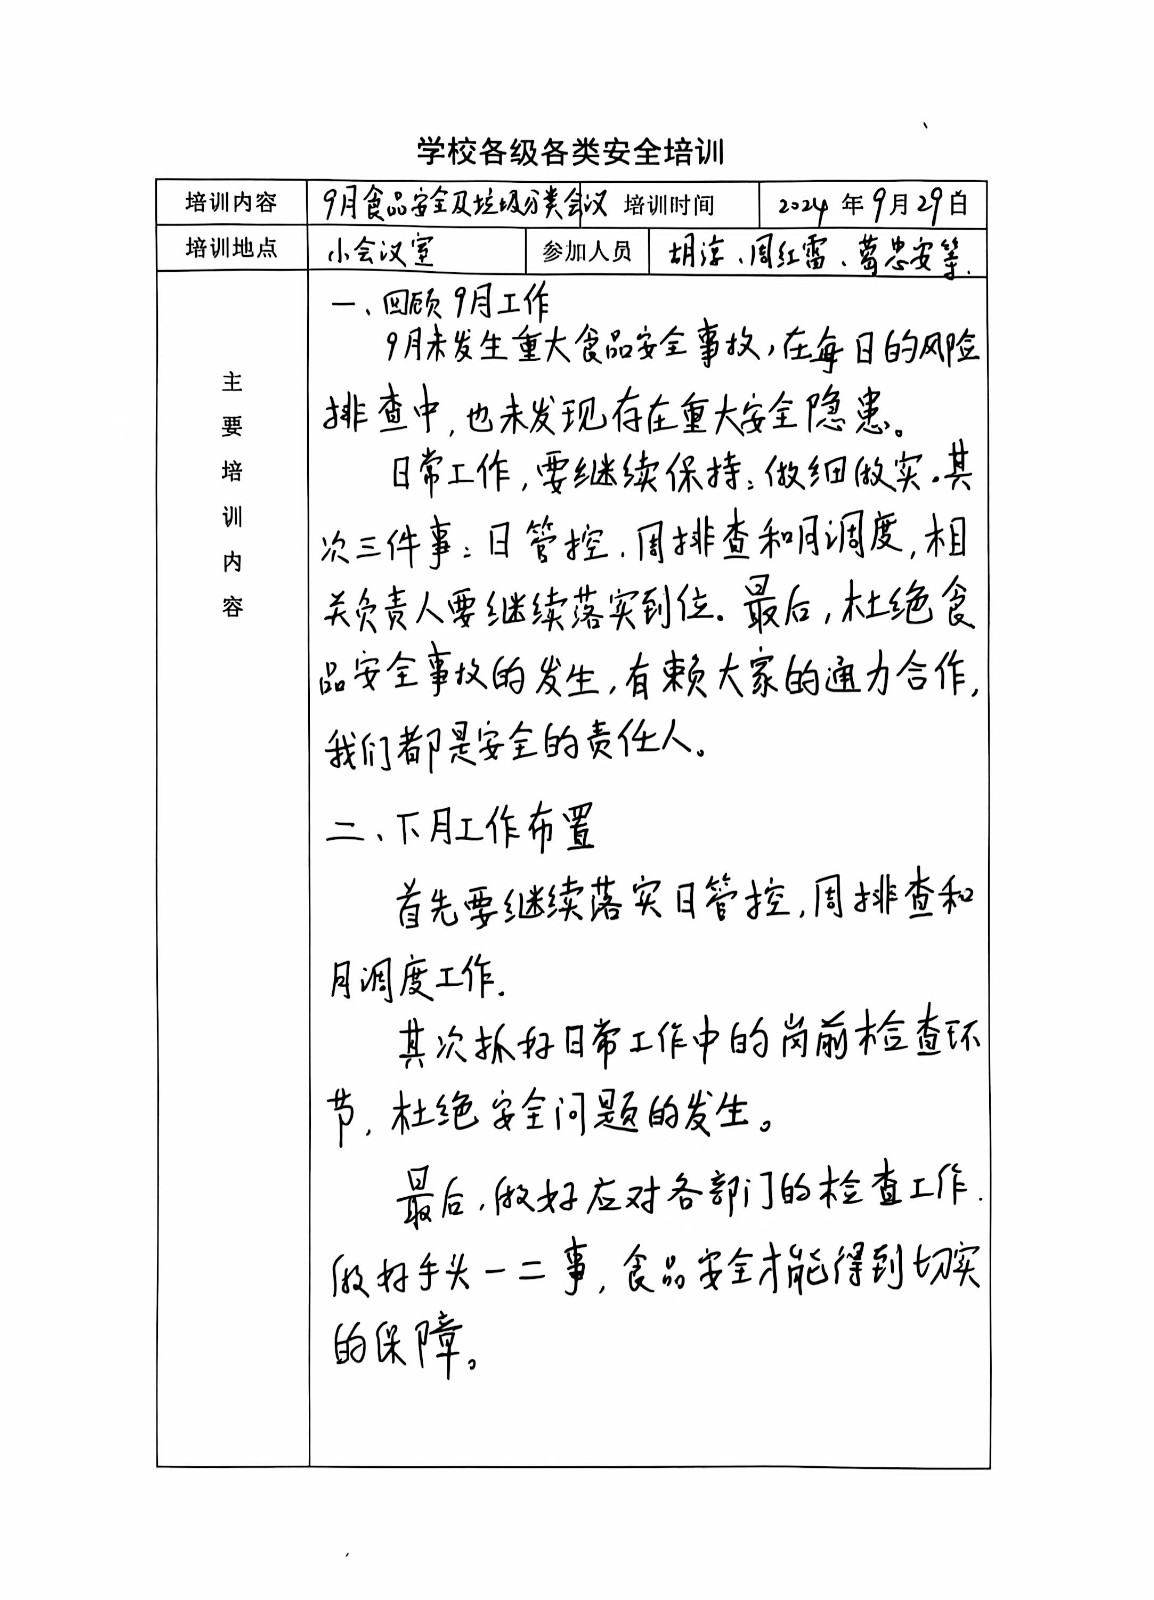 学校各级各类安全培训
培训内容 9月食品安全及垃圾分类会议 培训时间 2024年9月29日
培训地点 小会议室 参加人员 胡淳、周红雷、葛忠安等.
主要培训内容
一、回顾9月工作
9月未发生重大食品安全事故,在每日的风险
排查中,也未发现存在重大安全隐患。
日常工作,要继续保持:做细做实.其
次三件事:日管控.周排查和月调度,相
关负责人要继续落实到位.最后,杜绝食
品安全事故的发生,有赖大家的通力合作,
我们都是安全的责任人。
二、下月工作布置
首先要继续落实日管控,周排查和
月调度工作.
其次抓好日常工作中的岗前检查环
节,杜绝安全问题的发生。
最后,做好应对各部门的检查工作.
做好手头一二事,食品安全才能得到切实
的保障。